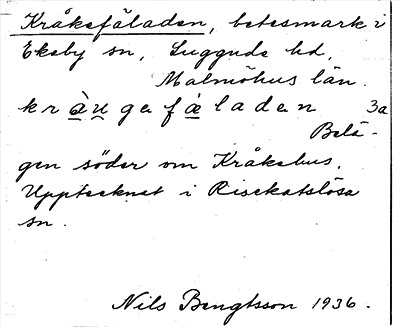 Kråkefäladen, betesmark i
Ekeby sn, Luggude hd,
Malmöhus län.
kràu̯gefǽladen 3a
Belä-
gen söder om Kråkehus.
Upptecknat i Risekatslösa
sn.
Nils Bengtsson 1936.